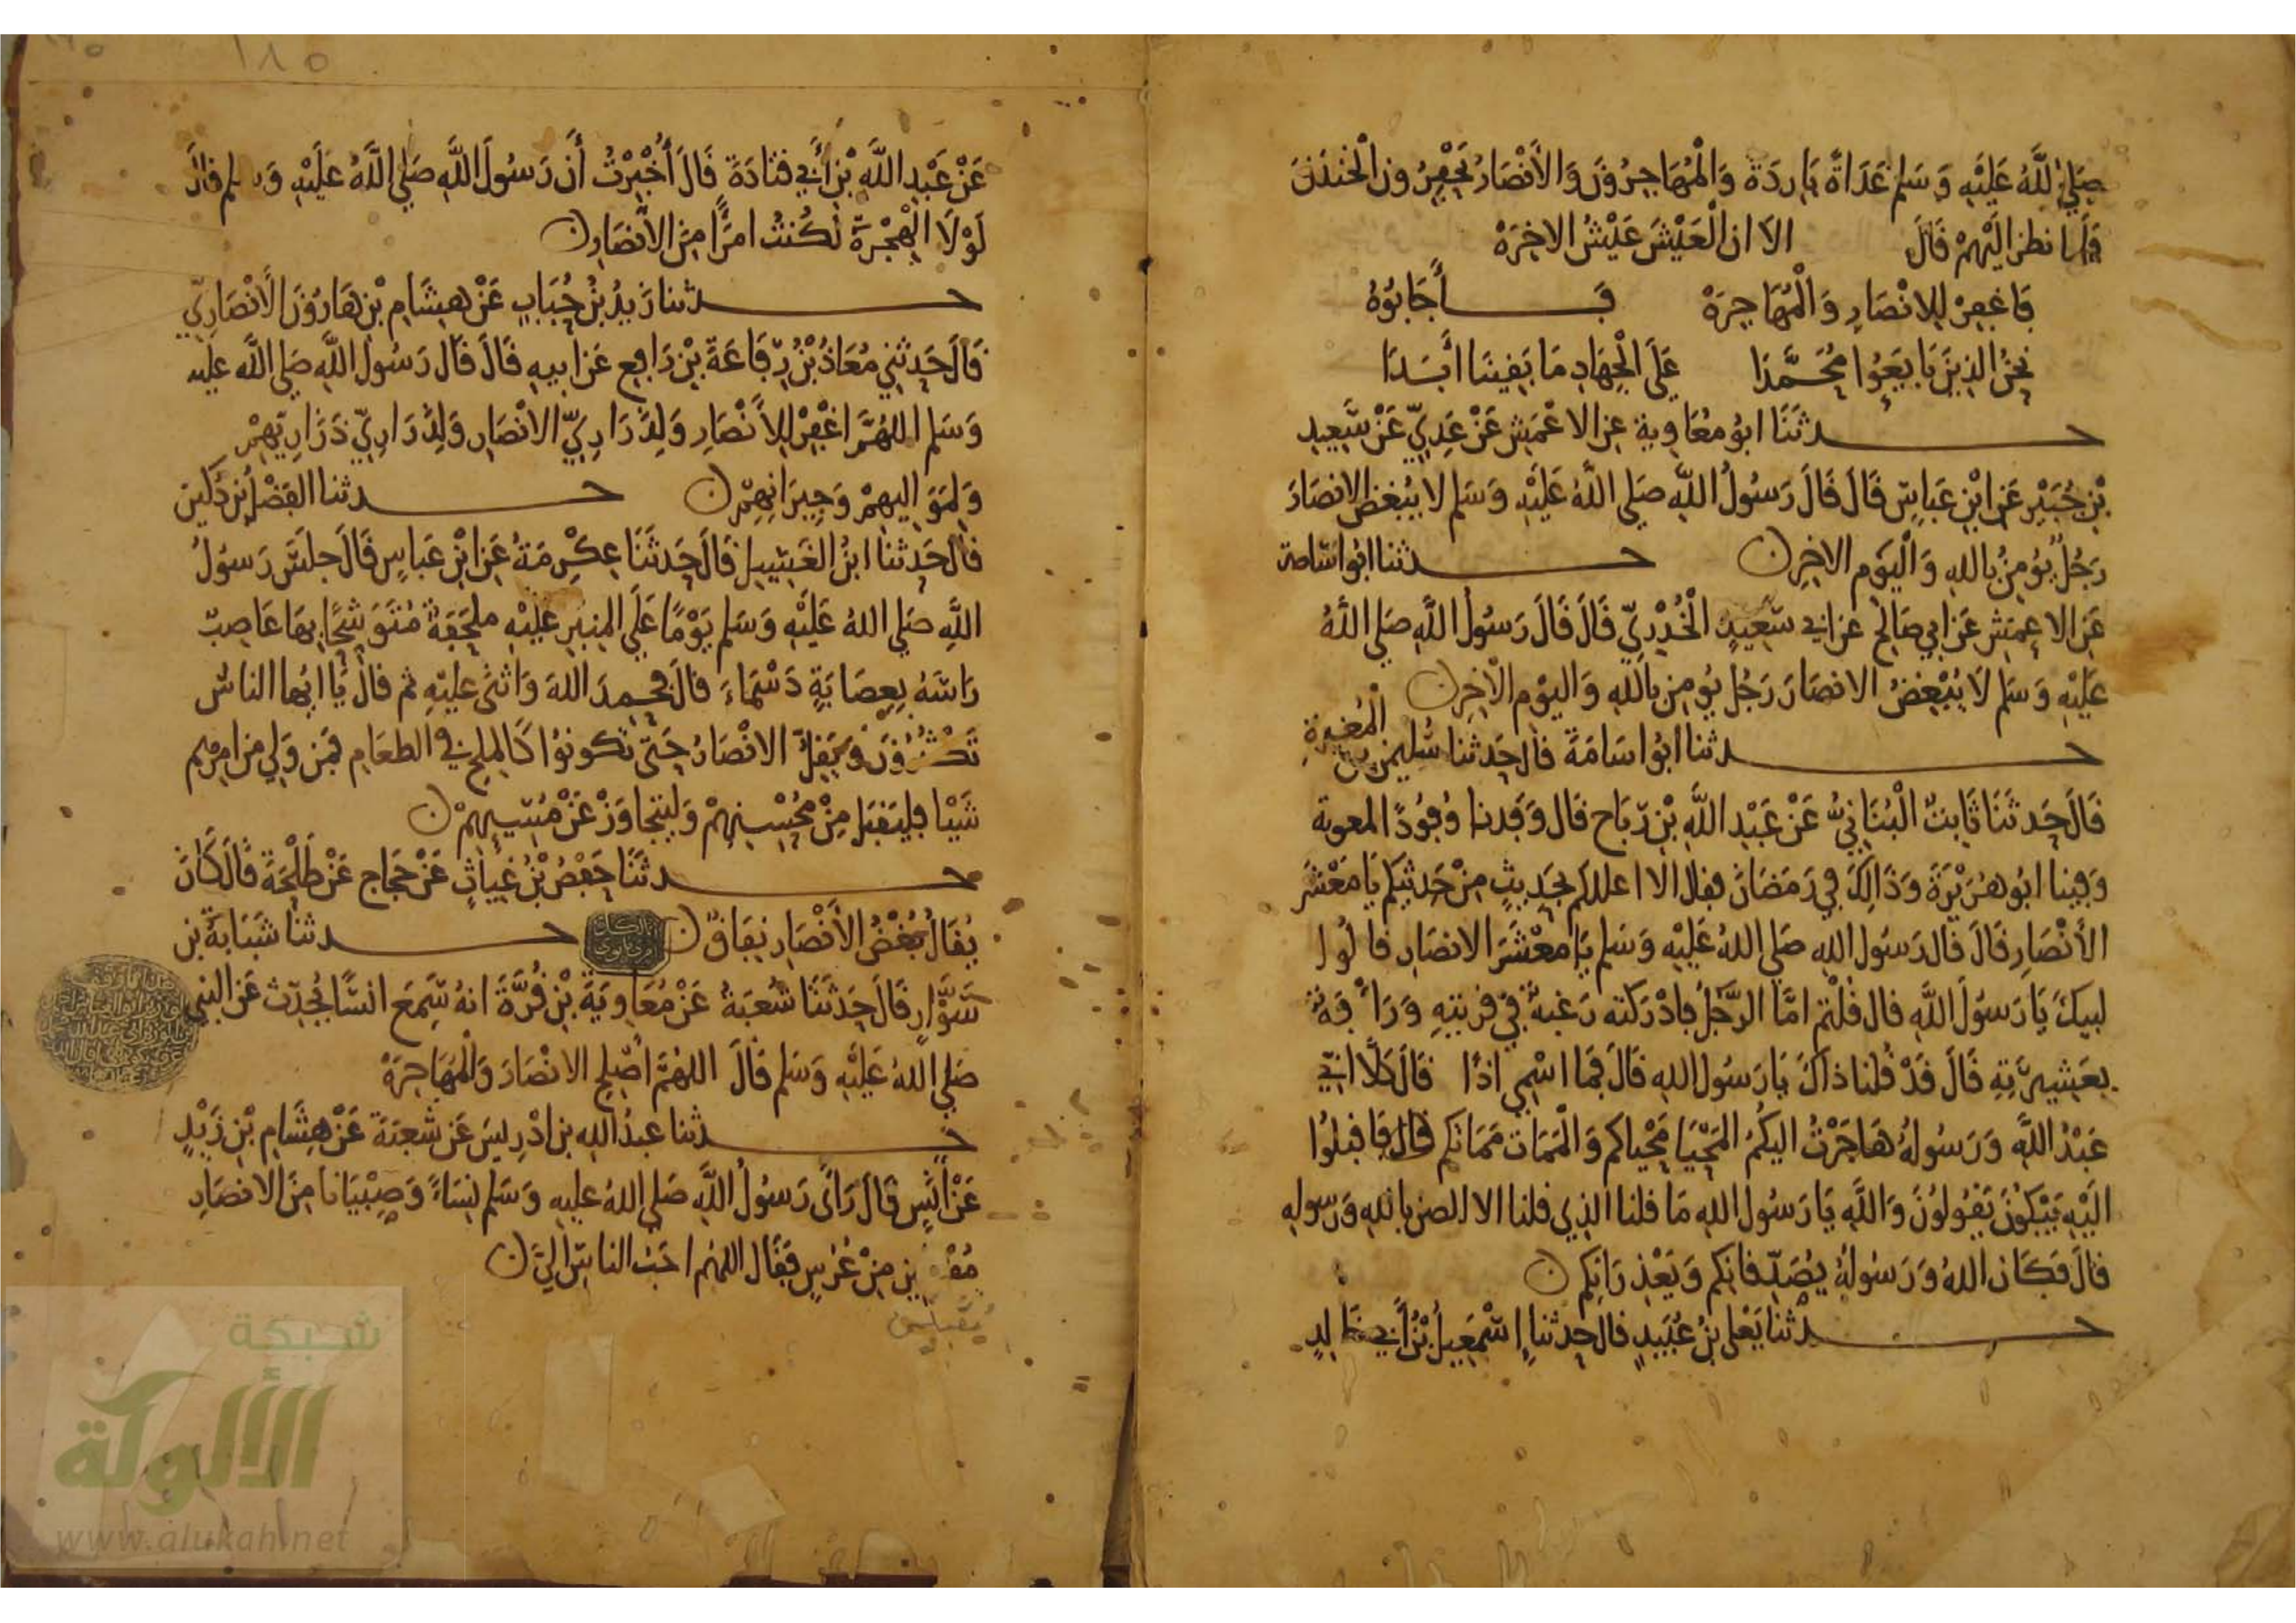 صَلَى اللَّهُ عَلَيْهِ وَسَلم غَدَاةً بَارِدَةً وَالْمُهَاجِرُونَ وَالأَنْصَارُ يَحْفِرُونَ الْخَنْدَقَ
فَلَمَا نظر اليْهِمْ قَالَ الاَ ان الْعَيْشَ عَيْشُ الاخِرَهْ
فَاغفِرْ لِلانْصَارِ وَالْمُهَاجِرَهْ فَأَجَابُوهُ
نَحْنُ الذِينَ بَايَعُوا مُحَمَّدَا عَلَى الْجِهَادِ مَا بَقِينَا أَبَدَا
حدثَنَا ابُو مُعَاوِية عن الاعْمَشِ عَنْ عَدِيّ عَنْ سَعِيدِ
بْنِ جُبَيْرٍ عَنِ ابْنِ عَبَاسٍ قَالَ قَالَ رَسُولُ اللَّهِ صَلى اللَّهُ عَلَيْهِ وَسَلم لا يُبْغضُ الانصَارَ
رَجُلٌ يُؤمِنُ بِاللهِ وَالْيَوم الاخِرِ ن حدثنا ابُو اسَامة
عَنِ الاعمَشِ عَنْ ابِي صَالِحٍ عن ابي سَعِيدٍ الْخُدْرِيّ قَالَ قَالَ رَسُولُ اللَّهِ صَلى اللَّهُ
عَلَيْهِ وَسَلم لَا يُبْغِضُ الانصَارَ رَجُل يُومِن بِاللَّهِ وَاليَوْمِ الْآخِرِ ن
حدثنا ابُو اسَامَةَ قال حَدثنا سُليمن بن الْمُغِيرَةِ
قَالَ حَدثَنَا ثَابِتٌ الْبُنَانِيُّ عَنْ عَبْدِ اللَّهِ بْنِ رَبَاح قَال وَفَدنا وُفُودًا لمعوية
وَفِينا ابُو هُرَيْرَةَ وَذَالِكَ فِي رَمَضَانَ فقال الا اعللكم بِحَدِيثٍ مِنْ حَدِيثِكم يَا مَعْشَرَ
الأنْصَارِ قَالَ قَال رَسُول اللهِ صَلى اللهُ عَلَيْهِ وَسَلم يَا معْشَرَ الانصَارِ قَالُوا
لبيكَ يَا رَسُولَ اللَّهِ قال قُلْتم امَّا الرَّجُلُ فادْرَكته رَغبةٌ فِي قريتِهِ وَرَأْفَةٌ
بعَشِيرَتِهِ قَالَ قَدْ قُلنا ذاكَ يَا رَسُول اللهِ قَالَ فَمَا اسْمِي اذًا قَالَ كَلَّا انِّي
عَبْدُ اللَّهِ وَرَسُولُهُ هَاجَرْتُ اليكُمُ المَحْيَا مَحْيَاكم وَالْمَمَات مَمَاتكم قال فَاقبلُوا
الَيْهِ يَبْكُونَ يَقُولُونَ وَاللَّهِ يَا رَسُول اللهِ مَا قلنا الذِي قلنا الا الضن باللهِ وَرَسولِهِ
قَالَ فَكَان اللهُ وَرَسُولُهُ يُصَدِّقانِكم وَيَعْذِرَانِكم ن
حدثنا يَعْلى بْنُ عُبَيدٍ قال حدثنا إِسْمَعِيلُ بْنُ أَبي خَالِدٍ
١٨٥
عَنْ عَبْدِ اللَّهِ بْنِ أَبِي قتَادَةَ قَالَ أُخْبِرْتُ أَن رَسُولَ اللَّهِ صَلى اللَّهُ عَلَيْهِ وَسلم قَالَ
لَوْلَا الْهِجْرَةُ لكُنتُ امرًأ مِنَ الأَنْصَارِ ن
حدثنا زَيدُ بْنُ حُبَابٍ عَنْ هِشَامِ بْنِ هَارُونَ الأَنْصَارِيّ
قَالَ حَدثنِي مُعَاذُ بْنُ رِفَاعَةَ بْنِ رَافِعٍ عَنْ ابيهِ قَالَ قَال رَسُولُ اللَّهِ صَلى اللَّه عليه
وَسَلم اللهُمَّ اغْفِرْ لِلأَنْصَارِ وَلِذَرَارِيِّ الانْصَارِ وَلِذَرَارِيِّ ذَرَارِيّهِمْ
وَلِمَوَاليهِمْ وَجِيرَانِهِمْ ن حدثنا الفَضْلُ بْنُ دُكَين
قال حَدثنا ابنُ الغَسِيلِ قَالَ حَدثَنَا عِكْرِمَةُ عَنِ ابْنِ عَبَاسٍ قَالَ جلَسَ رَسُولُ
اللَّهِ صَلى اللهُ عَلَيْهِ وَسَلم يَوْمًا عَلَى المِنبَرِ عَلَيْهِ ملحَفَةٌ مُتَوَشِّحًا بِهَا عَاصِبٌ
رَاسَهُ بِعِصَابَةٍ دَسْمَاءَ قالَ فحمدَ اللهَ وَاثنَى عليْهِ ثم قال يَا ايُها الناسُ
تَكْثُرُونَ وَيَقِلّ الانْصَارُ حَتى تكونوُا كَالملحِ في الطعَامِ فمَن وَلِي من امرِهم
شَيْئا فليَقبَل مِنْ مُحْسِنِهِمْ وَليتجاوَزْ عَنْ مُسِيئِهِمْ ن
حدثَنَا حَفْصُ بْنُ غيَاثٍ عَنْ حَجاج عَنْ طَلْحَةَ قَالَ كَانَ
يُقَالُ بُغْضُ الأَنْصَارِ نِفَاقٌ ن حدثنا شَبَابَةُ بن
سَوَّارٍ قَالَ حَدثَنَا شُعبَةُ عَنْ مُعَاوِيَةَ بْنِ قُرَّةَ انهُ سَمِعَ انسًا يُحَدِّث عَن النبي
صَلى اللهُ عَلَيْهِ وَسَلم قَالَ اللهُمَّ أَصْلِحِ الانْصَارَ وَالْمُهَاجِرَهْ
حدثنا عبدُ اللهِ بن ادْرِيسَ عَن شُعبَةَ عَنْ هِشَامِ بْنِ زَيْدٍ
عَنْ أَنَسٍ قَالَ رَأَى رَسُولُ اللَّهِ صَلى اللهُ عليهِ وَسَلم نِسَاءً وَصِبْيَانا مِنَ الانصَارِ
مُقْبلين مِنْ عُرْسٍ فَقَال اللهُم احَبُّ الناسِ اليَّ ن
مُقبلين
شبكة
الألوكة
www.alukah.net